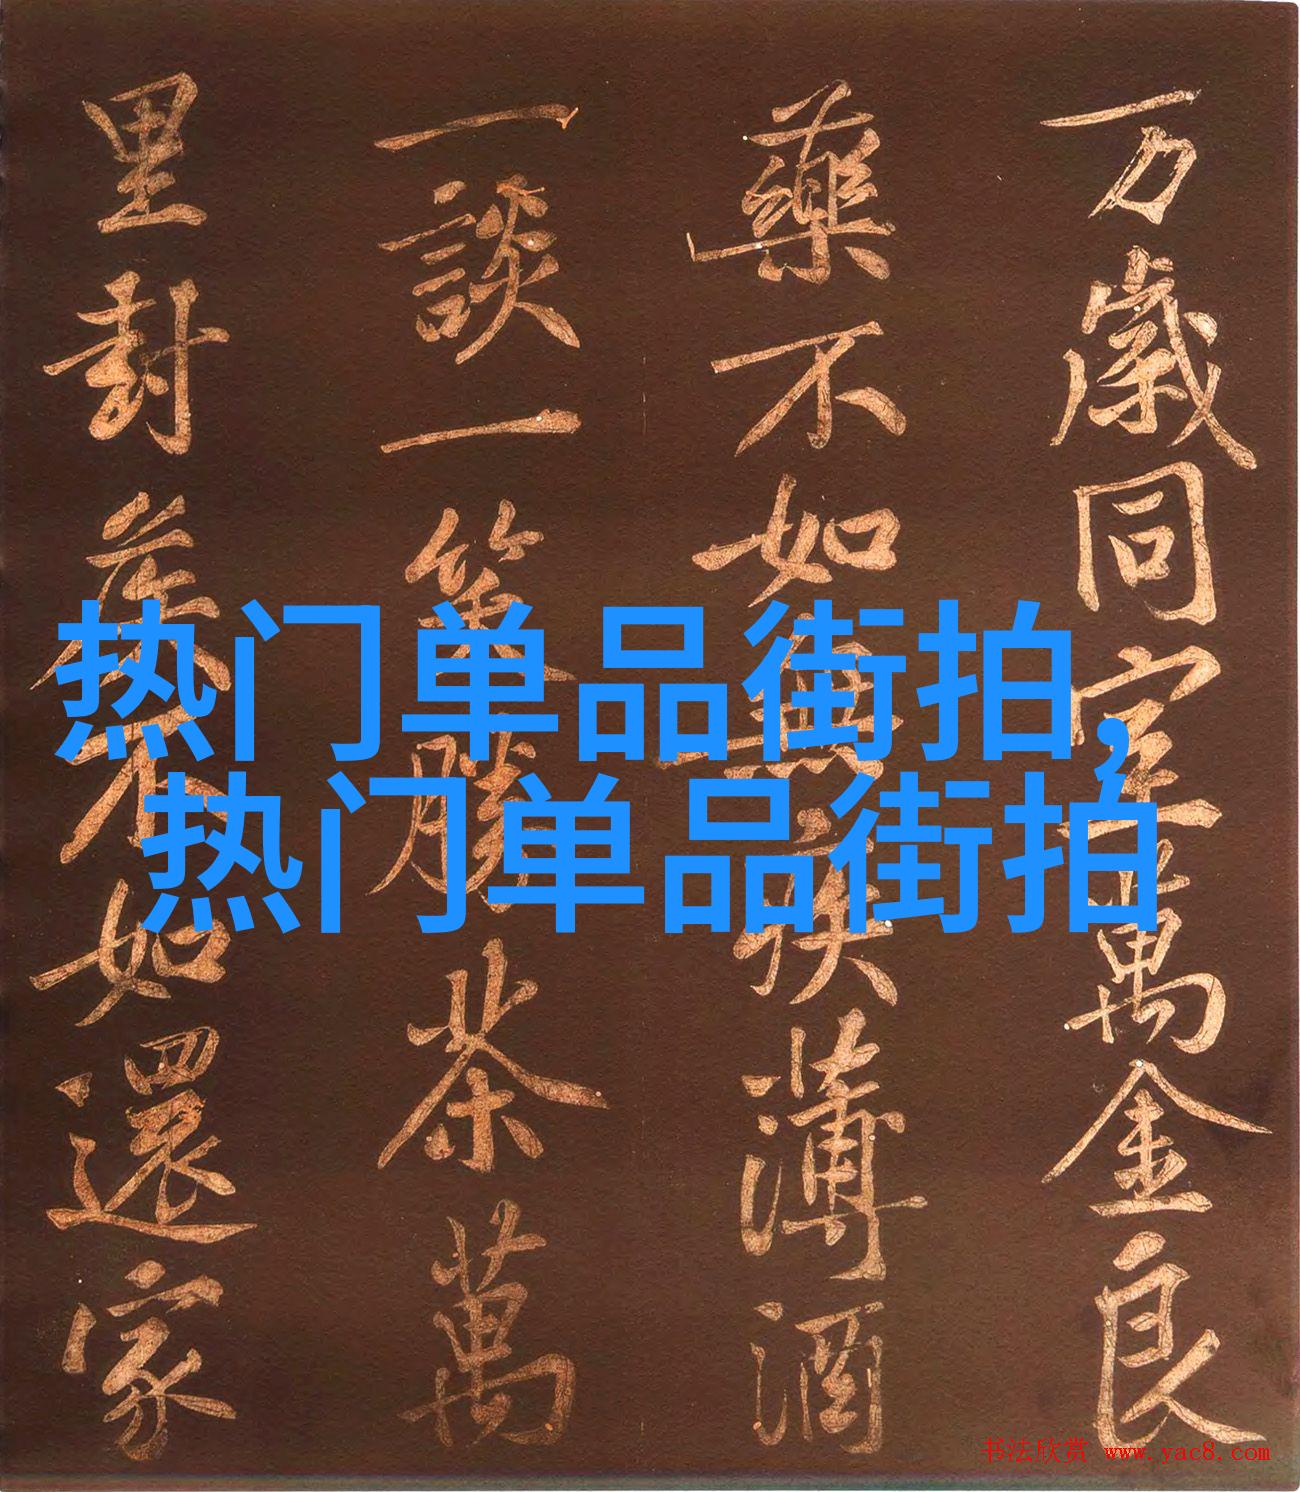 热门单品街拍,
热门单品街拍
万歲同室萬金良
藥不如無疾薄酒
一談一笑勝茶萬
里封侯不如還家
书法欣赏 www.yac8.com